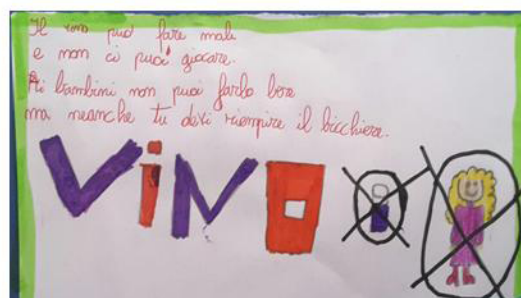 Il vino può fare male
e non ci puoi giocare.
Ai bambini non puoi farlo bere
ma neanche tu devi riempire il bicchiere.
ViNO